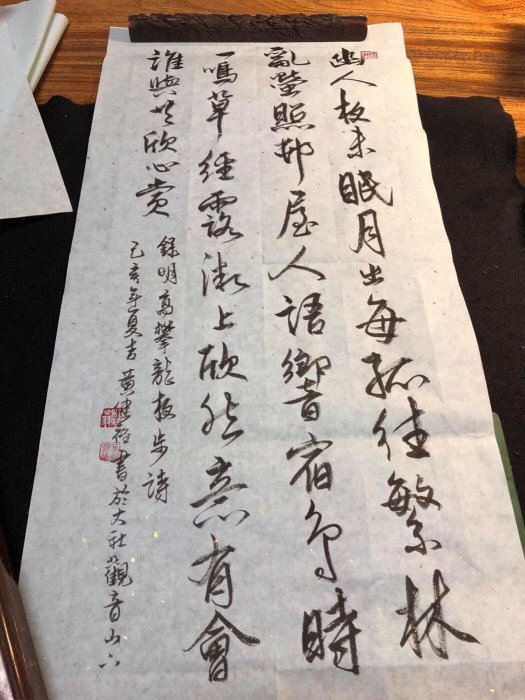 幽人夜未眠月出每孤往繁林
亂螢照邨屋人語響宿鳥時
一鳴草徑露微上欣然意有會
誰與共欣心賞
錄明高攀龍夜步詩
己亥年夏吉 黃書於大社觀音山下